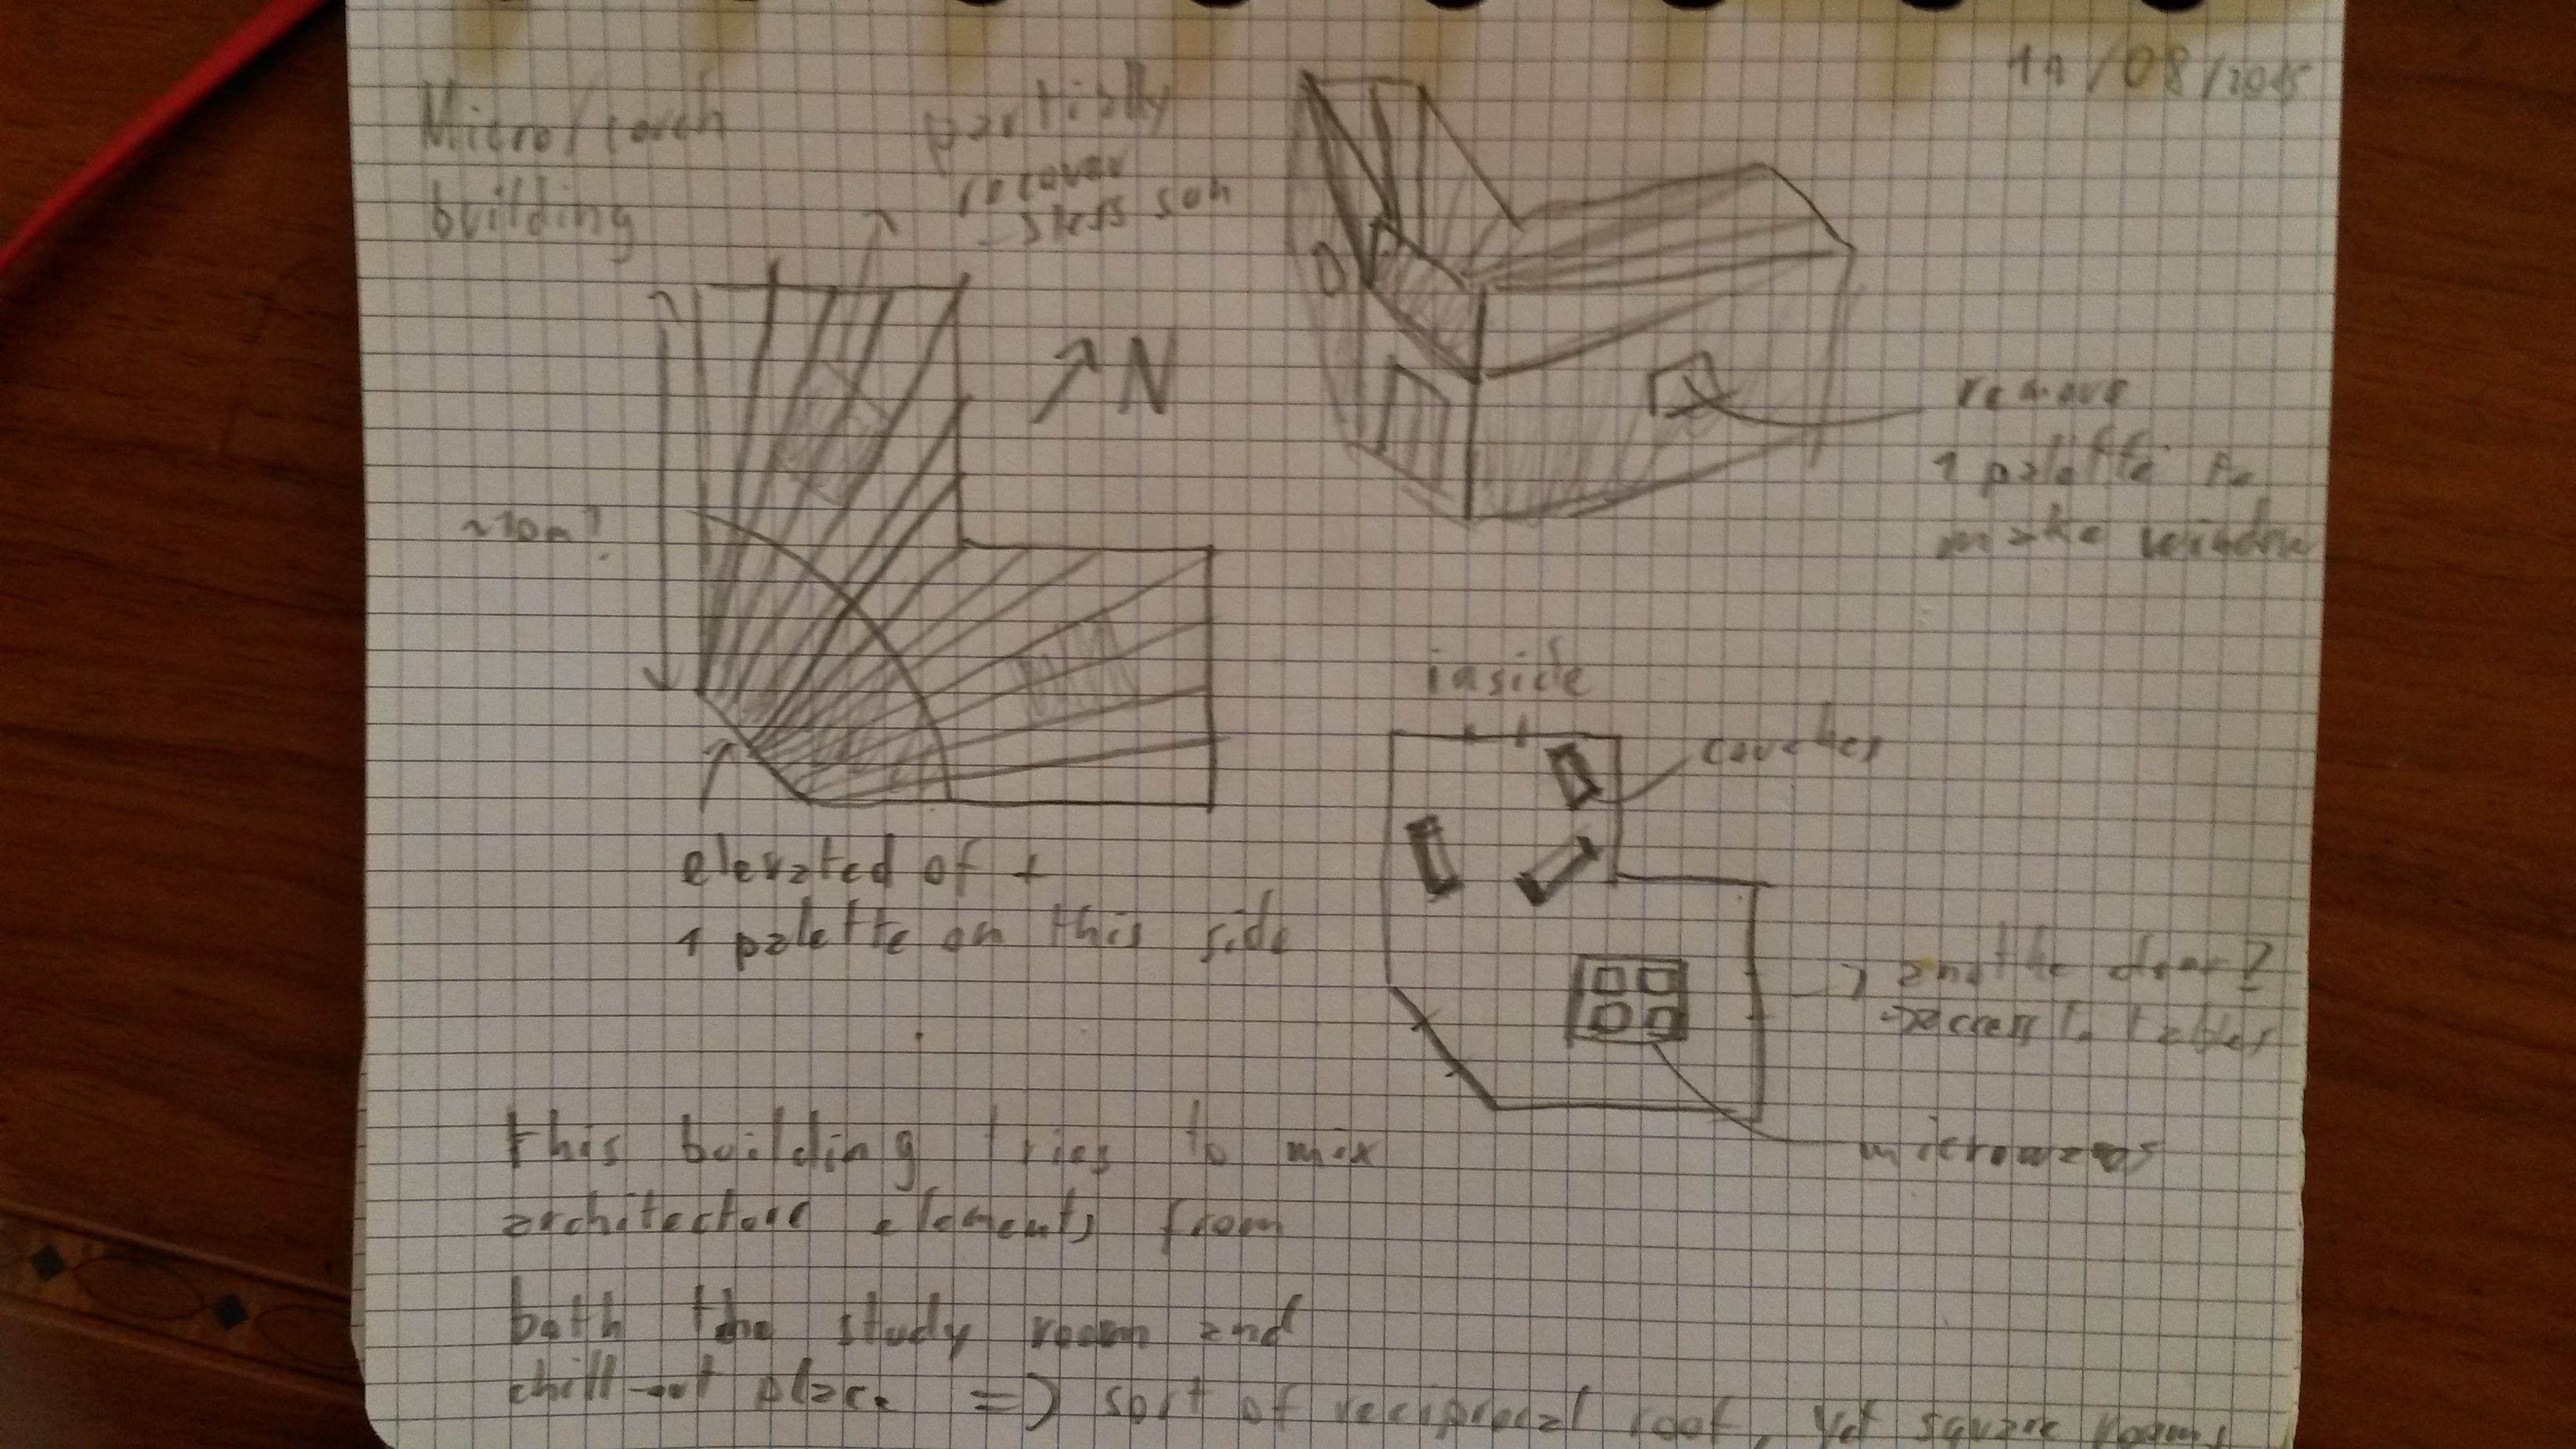 Micro/couch
building
partially
recover
less sun
N
~10m?
elevated of +
1 palette on this side
remove
1 palette to
make window
inside
couches
another door?
access to tables
microwaves
this building tries to mix
architecture elements from
both the study room and
chill-out place => sort of reciprocal roof, yet square rooms